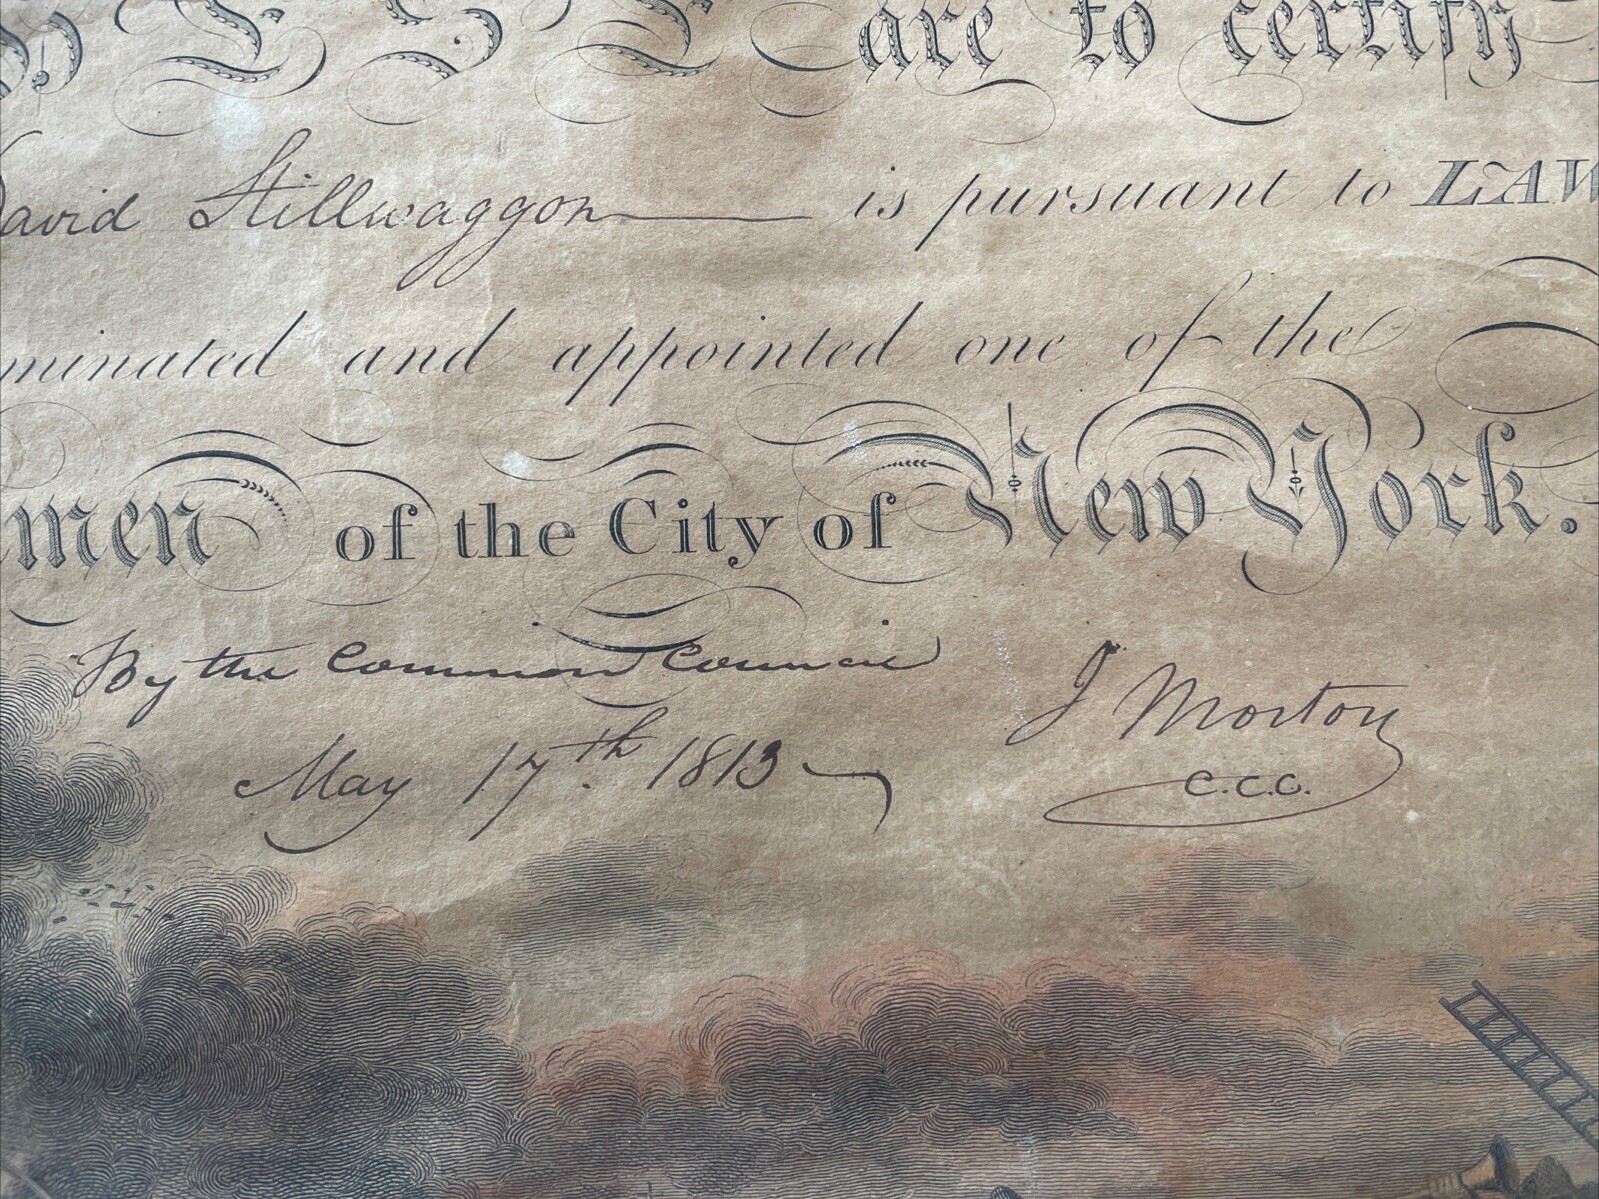 ESE are to certify
David Stillwaggon is pursuant to LAW
minated and appointed one of the
men of the City of New York.
By the Common Council
May 17th 1813
J Morton
C.C.C.